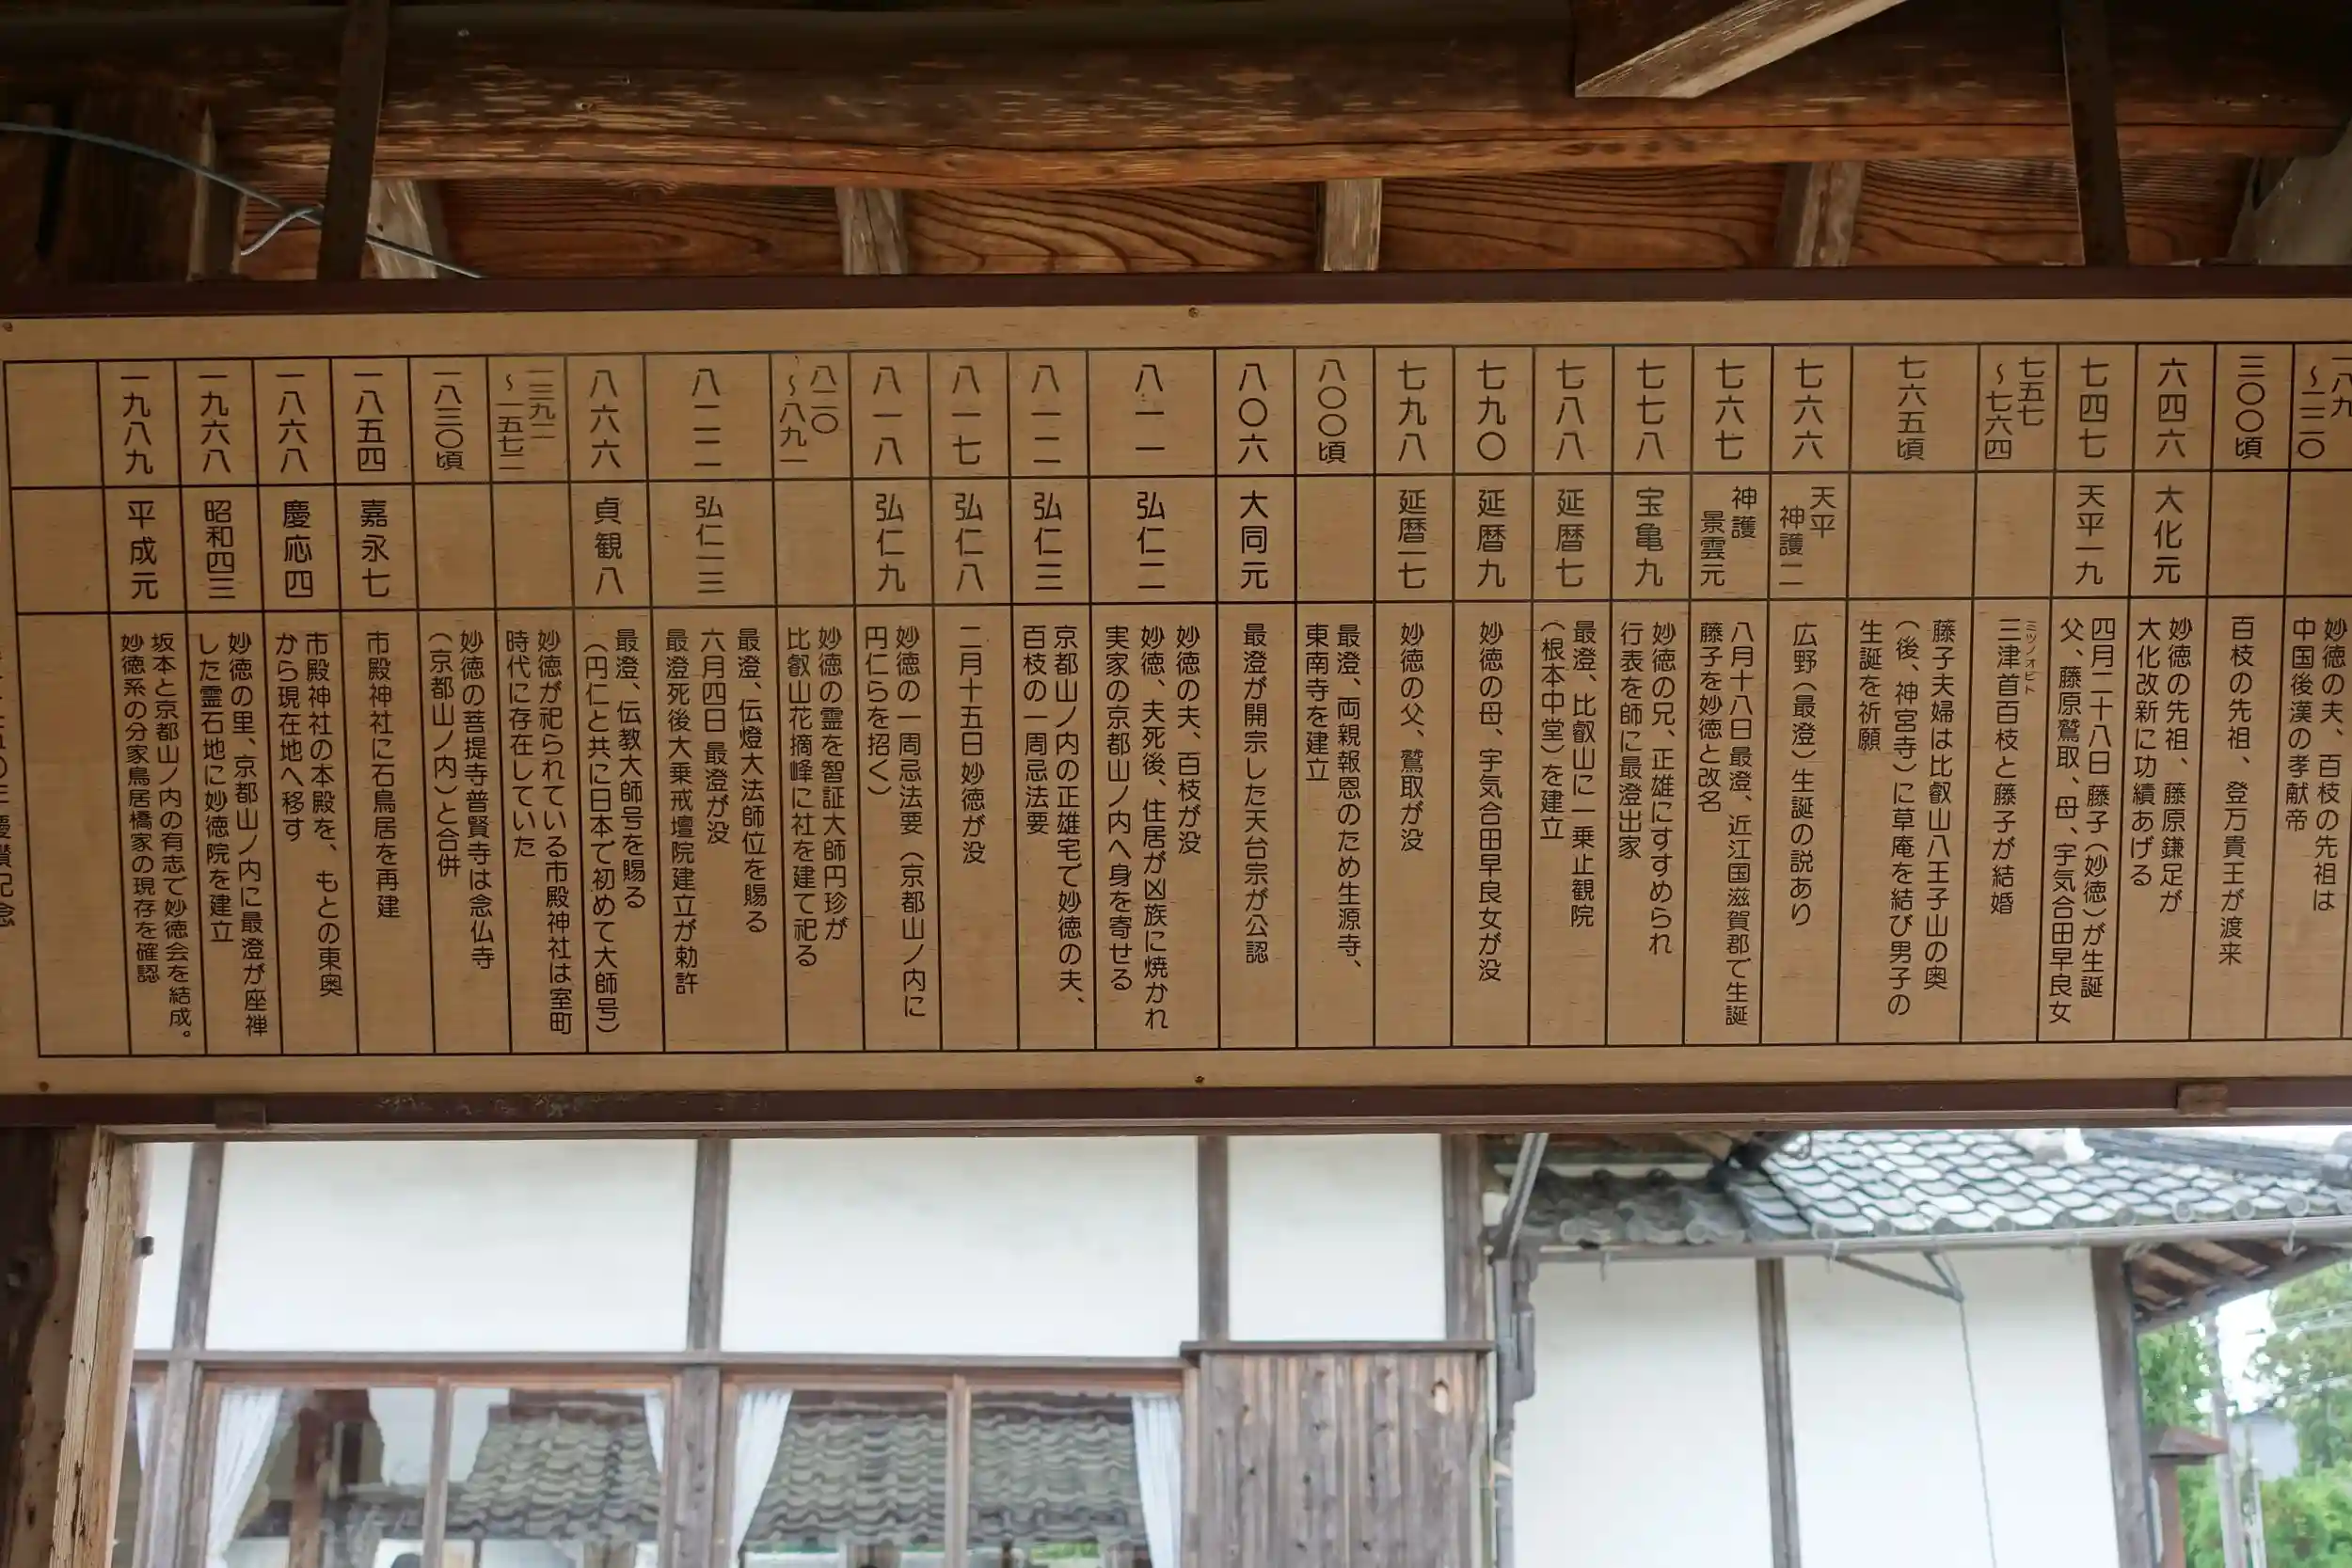 一八九
～二二〇
妙徳の夫、百枝の先祖は
中国後漢の孝献帝
三〇〇頃
百枝の先祖、登万貴王が渡来
六四六
大化元
妙徳の先祖、藤原鎌足が
大化改新に功績あげる
七四七
天平一九
四月二十八日 藤子(妙徳)が生誕
父、藤原鷲取、母、宇気合田早良女
七五七
～七六四
三津首百枝と藤子が結婚
ミツノオビト
七六五頃
藤子夫婦は比叡山八王子山の奥
(後、神宮寺)に草庵を結び男子の
生誕を祈願
七六六
天平
神護二
広野(最澄)生誕の説あり
七六七
神護
景雲元
八月十八日 最澄、近江国滋賀郡で生誕
藤子を妙徳と改名
七七八
宝亀九
妙徳の兄、正雄にすすめられ
行表を師に最澄出家
七八八
延暦七
最澄、比叡山に一乗止観院
(根本中堂)を建立
七九〇
延暦九
妙徳の母、宇気合田早良女が没
七九八
延暦一七
妙徳の父、鷲取が没
八〇〇頃
最澄、両親報恩のため生源寺、
東南寺を建立
八〇六
大同元
最澄が開宗した天台宗が公認
八一一
弘仁二
妙徳の夫、百枝が没
妙徳、夫死後、住居が凶族に焼かれ
実家の京都山ノ内へ身を寄せる
八一二
弘仁三
京都山ノ内の正雄宅で妙徳の夫、
百枝の一周忌法要
八一七
弘仁八
二月十五日 妙徳が没
八一八
弘仁九
妙徳の一周忌法要(京都山ノ内に
円仁らを招く)
八二〇
～八九一
妙徳の霊を智証大師円珍が
比叡山花摘峰に社を建て祀る
八二二
弘仁一三
最澄、伝燈大法師位を賜る
六月四日 最澄が没
最澄死後大乗戒壇院建立が勅許
八六六
貞観八
最澄、伝教大師号を賜る
(円仁と共に日本で初めて大師号)
一三九二
～一五七二
妙徳が祀られている市殿神社は室町
時代に存在していた
一八三〇頃
妙徳の菩提寺普賢寺は念仏寺
(京都山ノ内)と合併
一八五四
嘉永七
市殿神社に石鳥居を再建
一八六八
慶応四
市殿神社の本殿を、もとの東奥
から現在地へ移す
一九六八
昭和四三
妙徳の里、京都山ノ内に最澄が座禅
した霊石地に妙徳院を建立
一九八九
平成元
坂本と京都山ノ内の有志で妙徳会を結成。
妙徳系の分家鳥居橋家の現存を確認
慶讃記念